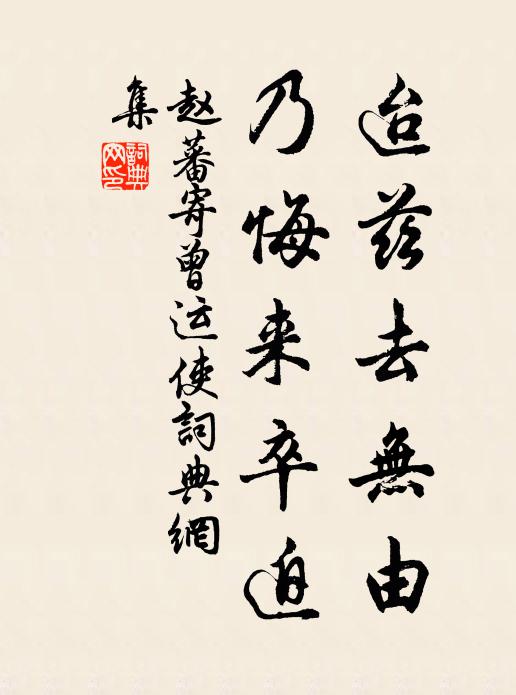 迨茲去無由
乃悔来卒迫
赵蕃寄曾运使詞典網
集
詞典网印